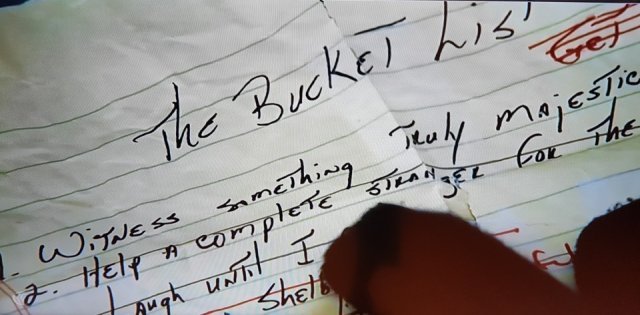 The Bucket Lis
Get
1. Witness something Truly Majestic
2. Help a complete stranger for the
Laugh until I
Shelb